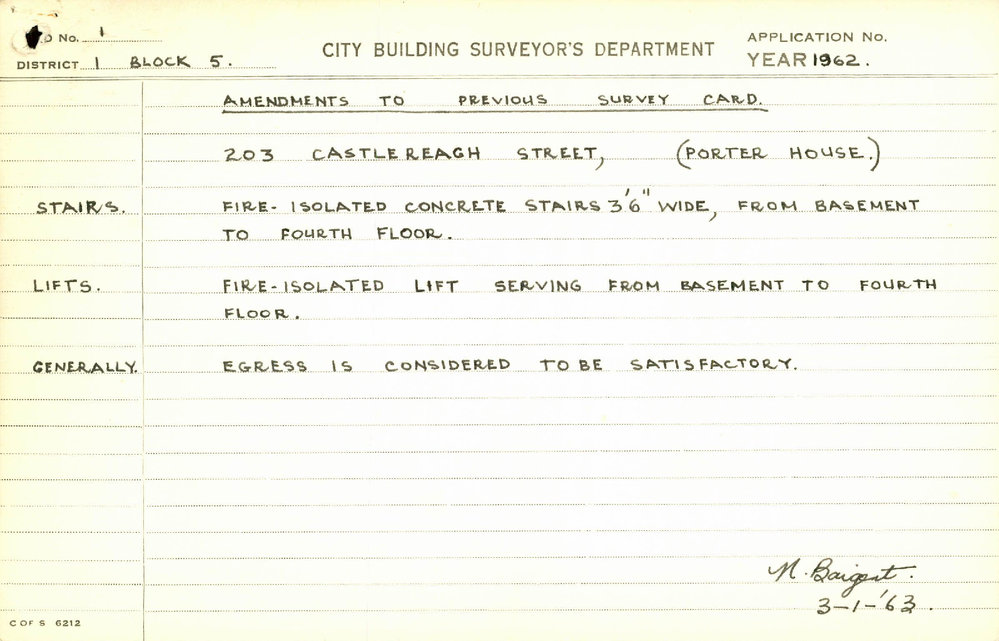 No. 1
DISTRICT 1 BLOCK 5.
CITY BUILDING SURVEYOR'S DEPARTMENT
APPLICATION No.
YEAR 1962.
AMENDMENTS TO PREVIOUS SURVEY CARD.
203 CASTLEREAGH STREET, (PORTER HOUSE.)
STAIRS. FIRE-ISOLATED CONCRETE STAIRS 3'6" WIDE, FROM BASEMENT
TO FOURTH FLOOR.
LIFTS. FIRE-ISOLATED LIFT SERVING FROM BASEMENT TO FOURTH
FLOOR.
GENERALLY. EGRESS IS CONSIDERED TO BE SATISFACTORY.
N. Baigent.
3-1-'63.
C OF S 6212